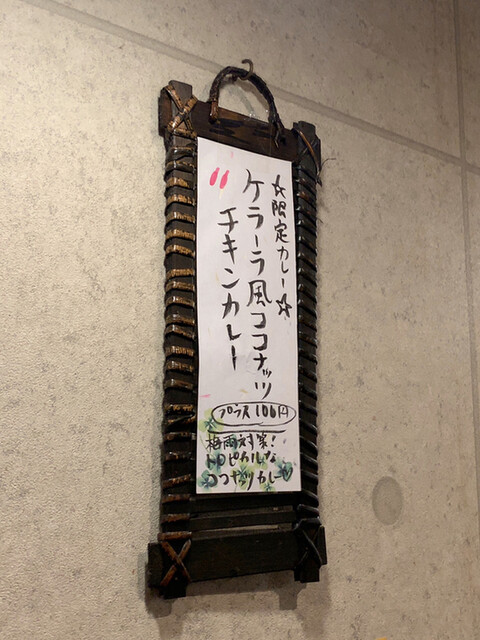 ☆限定カレー☆
ケララ風ココナッツ
チキンカレー
プラス100円
梅雨対策!
トロピカルな
ココナッツカレー♡